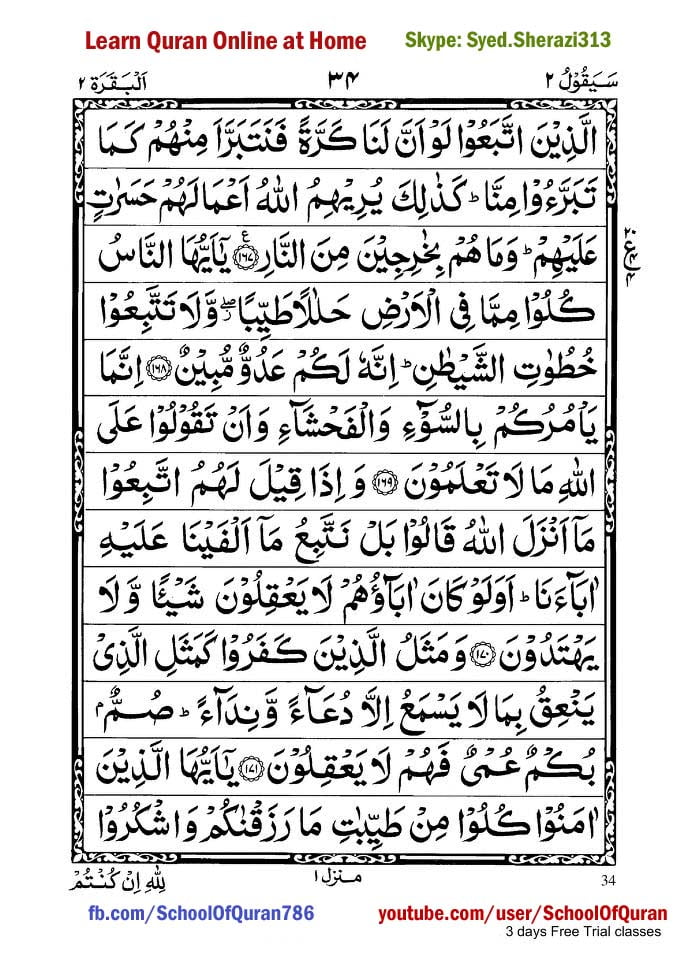 Learn Quran Online at Home Skype: Syed.Sherazi313
سَيَقُوْلُ ٢ ٣٤ اَلْبَقَرَة ٢
الَّذِيْنَ اتَّبَعُوْا لَوْ اَنَّ لَنَا كَرَّةً فَنَتَبَرَّاَ مِنْهُمْ كَمَا
تَبَرَّءُوْا مِنَّا ؕ كَذٰلِكَ يُرِيْهِمُ اللّٰهُ اَعْمَالَهُمْ حَسَرٰتٍ
عَلَيْهِمْ ؕ وَمَا هُمْ بِخٰرِجِيْنَ مِنَ النَّارِ ﴿۱۶۷﴾ ع يٰۤاَيُّهَا النَّاسُ
كُلُوْا مِمَّا فِى الْاَرْضِ حَلٰلًا طَيِّبًا ۖ وَّلَا تَتَّبِعُوْا
خُطُوٰتِ الشَّيْطٰنِ ؕ اِنَّهٗ لَكُمْ عَدُوٌّ مُّبِيْنٌ ﴿۱۶۸﴾ اِنَّمَا
يَاْمُرُكُمْ بِالسُّوْٓءِ وَالْفَحْشَآءِ وَاَنْ تَقُوْلُوْا عَلَى
اللّٰهِ مَا لَا تَعْلَمُوْنَ ﴿۱۶۹﴾ وَاِذَا قِيْلَ لَهُمُ اتَّبِعُوْا
مَآ اَنْزَلَ اللّٰهُ قَالُوْا بَلْ نَتَّبِعُ مَآ اَلْفَيْنَا عَلَيْهِ
اٰبَآءَنَا ؕ اَوَلَوْ كَانَ اٰبَآؤُهُمْ لَا يَعْقِلُوْنَ شَيْـًٔا وَّلَا
يَهْتَدُوْنَ ﴿۱۷۰﴾ وَمَثَلُ الَّذِيْنَ كَفَرُوْا كَمَثَلِ الَّذِىْ
يَنْعِقُ بِمَا لَا يَسْمَعُ اِلَّا دُعَآءً وَّنِدَآءً ؕ صُمٌّۢ
بُكْمٌ عُمْىٌ فَهُمْ لَا يَعْقِلُوْنَ ﴿۱۷۱﴾ يٰۤاَيُّهَا الَّذِيْنَ
اٰمَنُوْا كُلُوْا مِنْ طَيِّبٰتِ مَا رَزَقْنٰكُمْ وَاشْكُرُوْا
34 منزل ١ لِلّٰهِ اِنْ كُنْتُمْ
fb.com/SchoolOfQuran786 youtube.com/user/SchoolOfQuran
3 days Free Trial classes